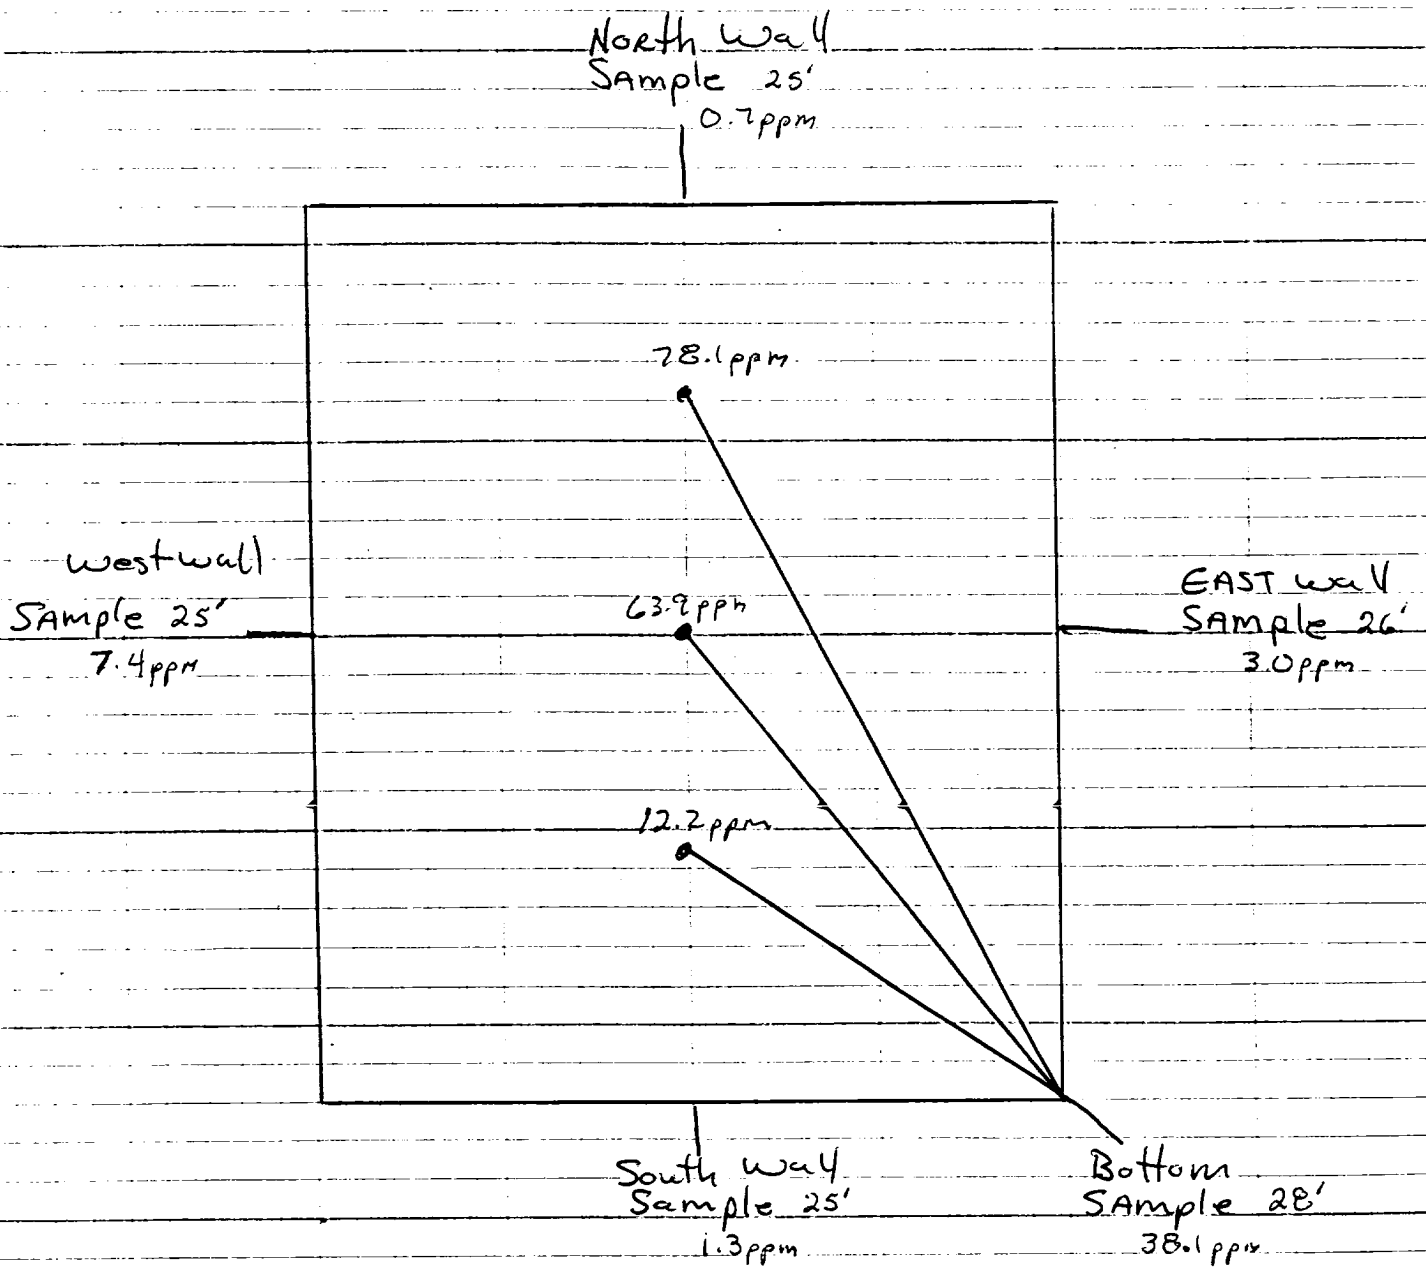 North Wall
Sample 25'
0.7ppm
78.1ppm
West wall
Sample 25'
7.4ppm
63.9ppm
EAST wall
Sample 26'
3.0ppm
12.2ppm
South Wall
Sample 25'
1.3ppm
Bottom
SAmple 28'
38.1ppm